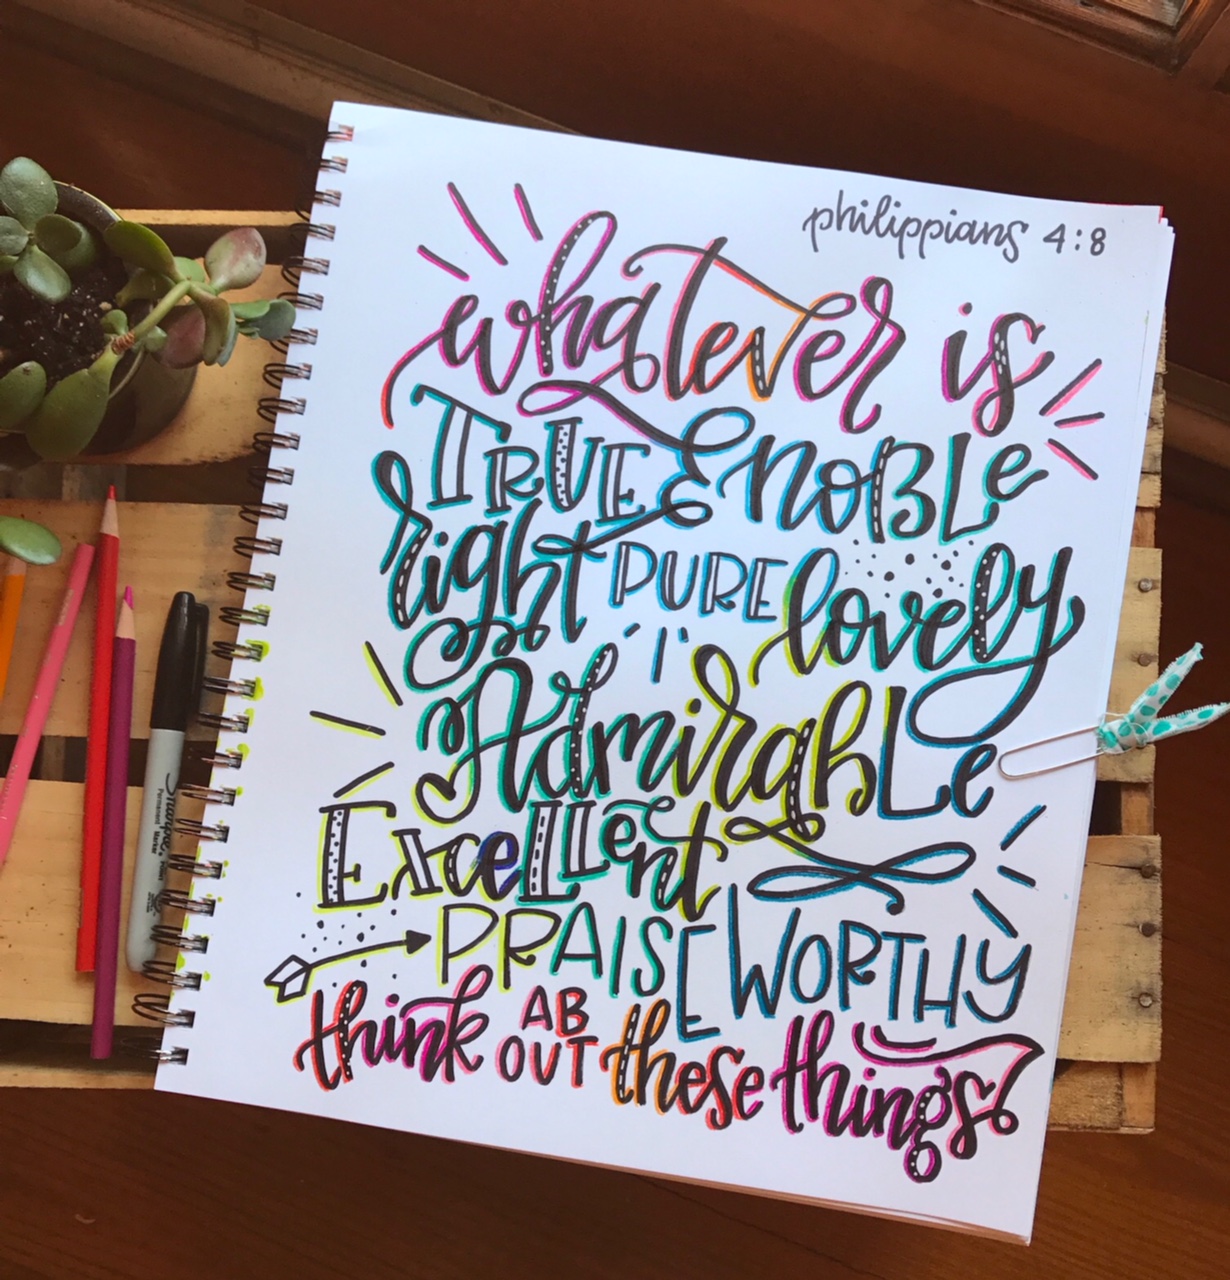 philippians 4:8
whatever is
TRUE & NOBLE
right PURE lovely
AdmirabLe
ExceLLent
PRAISEWORTHY
think ABOUT these things!
Sharpie
Permanent Marker